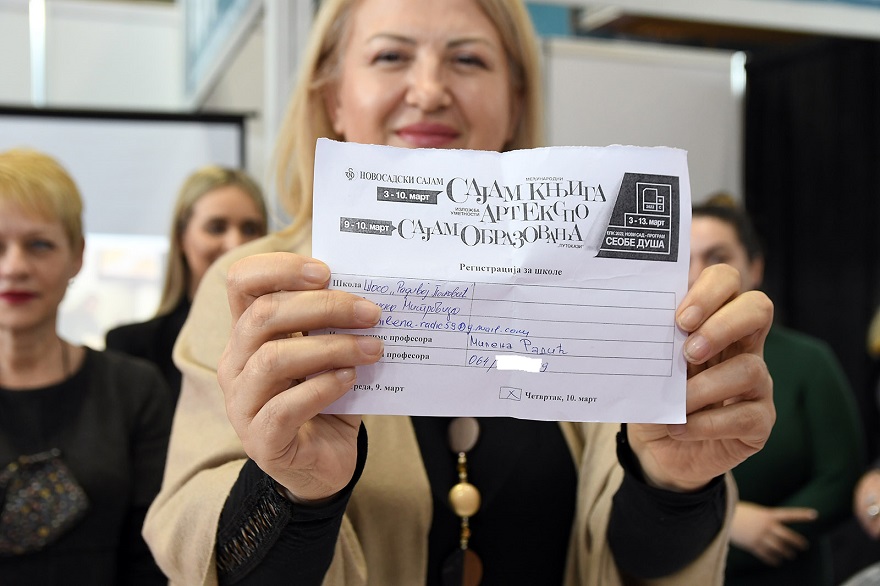 НОВОСАДСКИ САЈАМ
3 - 10. март
МЕЂУНАРОДНИ
САЈАМ КЊИГА
ИЗЛОЖБА УМЕТНОСТИ
АРТ ЕКСПО
9 - 10. март
САЈАМ ОБРАЗОВАЊА
„ПУТОКАЗИ“
2022
3 - 13. март
ЕПК 2022. НОВИ САД - ПРОГРАМ
СЕОБЕ ДУША
Регистрација за школе
Школа ШОСО „Радивој Поповић“
Митровица
milena-radic59@gmail.com
професора Милена Радић
професора 064/
реда, 9. март
X Четвртак, 10. март